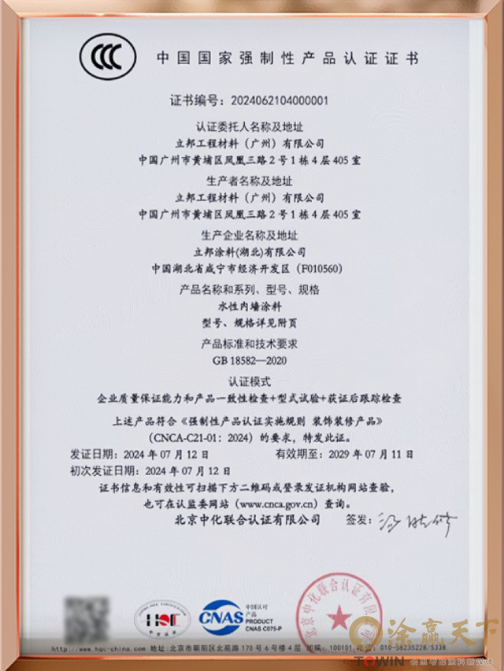 中国国家强制性产品认证证书
证书编号：2024062104000001
认证委托人名称及地址
立邦工程材料（广州）有限公司
中国广州市黄埔区凤凰三路2号1栋4层405室
生产者名称及地址
立邦工程材料（广州）有限公司
中国广州市黄埔区凤凰三路2号1栋4层405室
生产企业名称及地址
立邦涂料(湖北)有限公司
中国湖北省咸宁市经济开发区（F010560）
产品名称和系列、型号、规格
水性内墙涂料
型号、规格详见附页
产品标准和技术要求
GB 18582—2020
认证模式
企业质量保证能力和产品一致性检查+型式试验+获证后跟踪检查
上述产品符合《强制性产品认证实施规则 装饰装修产品》
（CNCA-C21-01：2024）的要求，特发此证。
发证日期：2024年07月12日 有效期至：2029年07月11日
初次发证日期：2024年07月12日
证书信息和有效性可扫描下方二维码或登录发证机构网站查验，
也可在认监委网站（www.cnca.gov.cn）查询。
北京中化联合认证有限公司 签发：
HQC
CNAS
中国认可
产品
PRODUCT
CNAS C075-P
北京中化联合认证有限公司
涂赢天下
TOWIN
http://www.hqc-china.com 地址：北京市朝阳区北苑路170号6号楼4层 100101 010-58235228/5338